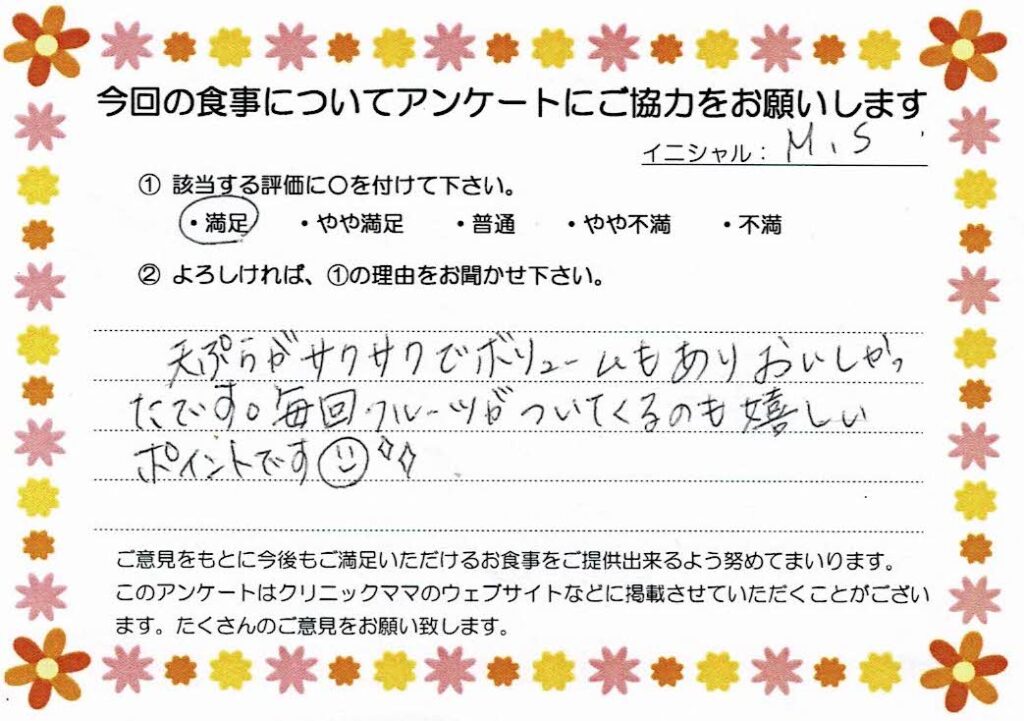 今回の食事についてアンケートにご協力をお願いします
イニシャル： M、S
① 該当する評価に〇を付けて下さい。
・満足 ・やや満足 ・普通 ・やや不満 ・不満
② よろしければ、①の理由をお聞かせ下さい。
天ぷらがサクサクでボリュームもありおいしかっ
たです。毎回フルーツがついてくるのも嬉しい
ポイントです
ご意見をもとに今後もご満足いただけるお食事をご提供出来るよう努めてまいります。
このアンケートはクリニックママのウェブサイトなどに掲載させていただくことがござい
ます。たくさんのご意見をお願い致します。